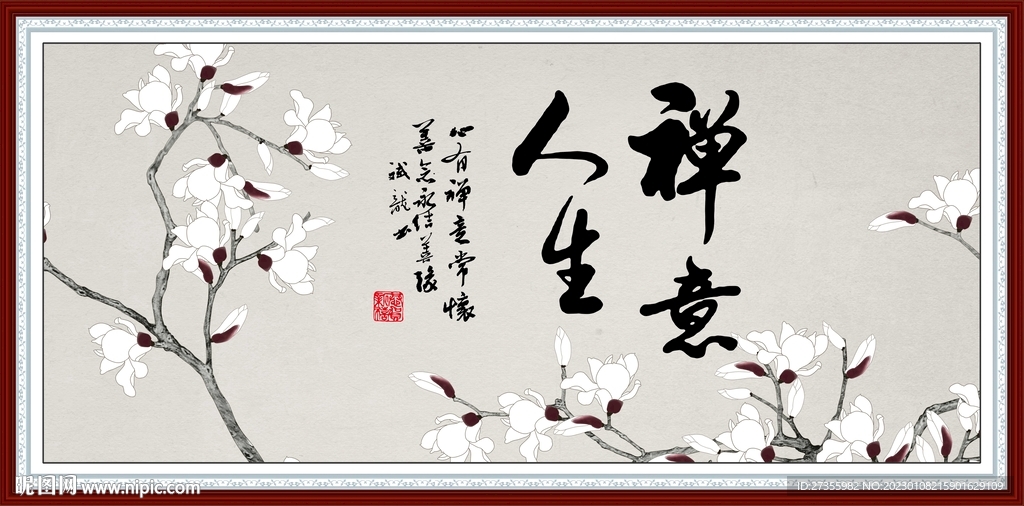 禅意
人生
心有禅意常懷
善念永结善缘
斌龍书
昵图网 www.nipic.com
ID:27355982 NO:20230108215901629109